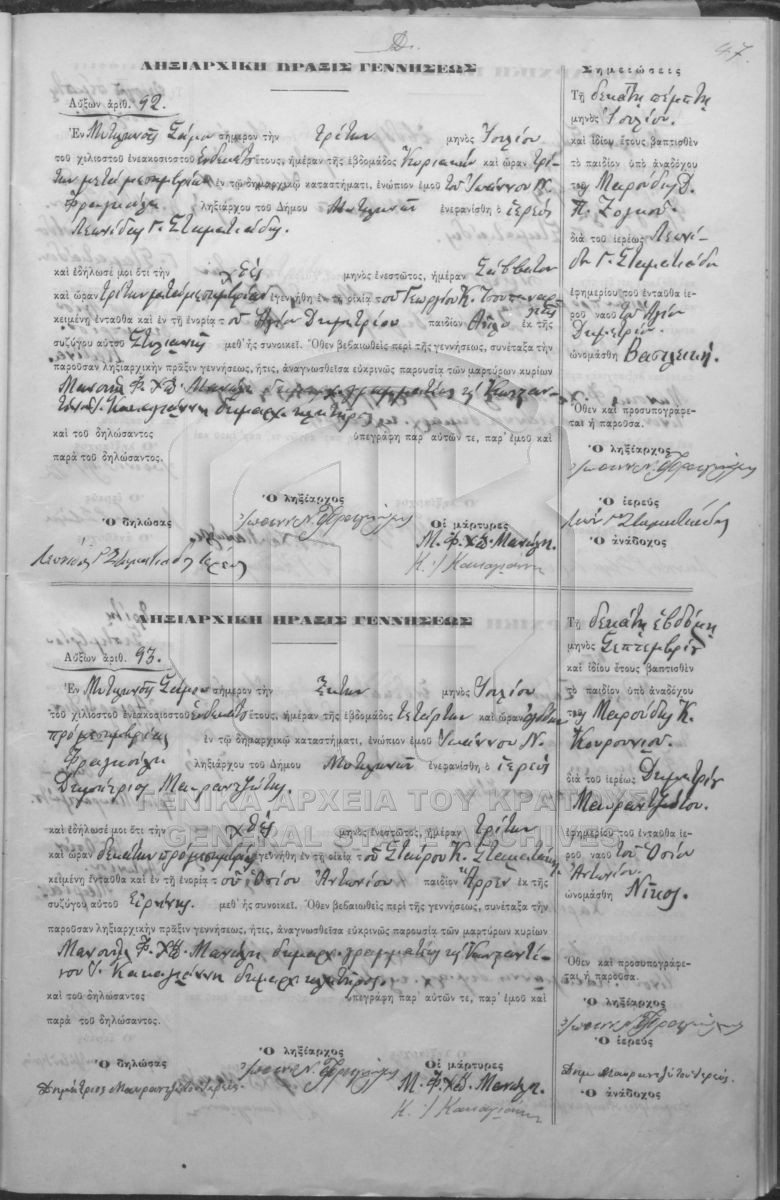 47.
ΛΗΞΙΑΡΧΙΚΗ ΠΡΑΞΙΣ ΓΕΝΝΗΣΕΩΣ
Αὔξων ἀριθ. 92.
Ἐν Μυτιληνιοῖς Σάμου σήμερον τὴν τρίτην μηνὸς Ἰουλίου
τοῦ χιλιοστοῦ ἐνεακοσιοστοῦ ἑνδεκάτου ἔτους, ἡμέραν τῆς ἑβδομάδος Κυριακὴν καὶ ὥραν τρί-
την μεταμεσημβρίαν ἐν τῷ δημαρχικῷ καταστήματι, ἐνώπιον ἐμοῦ τοῦ Ἰωάννου Ν.
Φραγκούλη ληξιάρχου τοῦ Δήμου Μυτιληνιῶν ἐνεφανίσθη ὁ ἱερεὺς
Λεωνίδας Γ. Σταματιάδης.
καὶ ἐδήλωσέ μοι ὅτι τὴν χθὲς μηνὸς ἐνεστῶτος, ἡμέραν Σάββατον
καὶ ὥραν τρίτην μεταμεσημβρίαν ἐγεννήθη ἐν τῇ οἰκίᾳ τοῦ Γεωργίου Κ.
κειμένῃ ἐνταῦθα καὶ ἐν τῇ ἐνορίᾳ τοῦ Ἁγίου Δημητρίου παιδίον θῆλυ ἐκ τῆς
συζύγου αὐτοῦ Στυλιανῆς μεθ' ἧς συνοικεῖ. Ὅθεν βεβαιωθεὶς περὶ τῆς γεννήσεως, συνέταξα τὴν
παροῦσαν ληξιαρχικὴν πρᾶξιν γεννήσεως, ἥτις, ἀναγνωσθεῖσα εὐκρινῶς παρουσίᾳ τῶν μαρτύρων κυρίων
Μανουὴλ Φ. Χ"Β. Μανώλη δημαρχ. γραμματέως καὶ Κωνσταν-
τίνου Ι. Κακαγιάννη δημαρχ. κλητῆρος
καὶ τοῦ δηλώσαντος ὑπεγράφη παρ' αὐτῶν τε, παρ' ἐμοῦ καὶ
παρὰ τοῦ δηλώσαντος.
Ὁ ληξίαρχος
Ὁ δηλώσας Ἰωάννης Ν. Φραγκούλης Οἱ μάρτυρες
Λεωνίδας Γ. Σταματιάδης ἱερεὺς Μ. Φ. Χ"Β. Μανώλη.
Κ. Ι. Κακαγιάννη
Σημειώσεις
Τῇ δεκάτῃ πέμπτῃ
μηνὸς Ἰουλίου
καὶ ἰδίου ἔτους βαπτισθὲν
τὸ παιδίον ὑπὸ ἀναδόχου
τῆς Μαρούδας Δ.
διὰ τοῦ ἱερέως Λεωνί-
δα Γ. Σταματιάδη
ἐφημερίου τοῦ ἐνταῦθα ἱε-
ροῦ ναοῦ τοῦ Ἁγίου
Δημητρίου
ὠνομάσθη Βασιλική.
Ὅθεν καὶ προσυπογράφε-
ται ἡ παροῦσα.
Ὁ ληξίαρχος
Ἰωάννης Ν. Φραγκούλης
Ὁ ἱερεύς
Λεων. Γ. Σταματιάδης
Ὁ ἀνάδοχος
ΛΗΞΙΑΡΧΙΚΗ ΠΡΑΞΙΣ ΓΕΝΝΗΣΕΩΣ
Αὔξων ἀριθ. 93.
Ἐν Μυτιληνιοῖς Σάμου σήμερον τὴν ἕκτην μηνὸς Ἰουλίου
τοῦ χιλιοστοῦ ἐνεακοσιοστοῦ ἑνδεκάτου ἔτους, ἡμέραν τῆς ἑβδομάδος Τετάρτην καὶ ὥραν ὀγδόην
πρὸ μεσημβρίας ἐν τῷ δημαρχικῷ καταστήματι, ἐνώπιον ἐμοῦ Ἰωάννου Ν.
Φραγκούλη ληξιάρχου τοῦ Δήμου Μυτιληνιῶν ἐνεφανίσθη ὁ ἱερεὺς
Δημήτριος Μαυραντζώτης.
καὶ ἐδήλωσέ μοι ὅτι τὴν χθὲς μηνὸς ἐνεστῶτος, ἡμέραν Τρίτην
καὶ ὥραν δεκάτην πρὸ μεσημβρίας ἐγεννήθη ἐν τῇ οἰκίᾳ τοῦ Σταύρου Κ. Σταματάκη
κειμένῃ ἐνταῦθα καὶ ἐν τῇ ἐνορίᾳ τοῦ Ὁσίου Ἀντωνίου παιδίον ἄρρεν ἐκ τῆς
συζύγου αὐτοῦ Εἰρήνης. μεθ' ἧς συνοικεῖ. Ὅθεν βεβαιωθεὶς περὶ τῆς γεννήσεως, συνέταξα τὴν
παροῦσαν ληξιαρχικὴν πρᾶξιν γεννήσεως, ἥτις, ἀναγνωσθεῖσα εὐκρινῶς παρουσίᾳ τῶν μαρτύρων κυρίων
Μανουὴλ Φ. Χ"Β. Μανώλη δημαρχ. γραμματέως καὶ Κωνσταντί-
νου Ι. Κακαγιάννη δημαρχ. κλητῆρος.
καὶ τοῦ δηλώσαντος ὑπεγράφη παρ' αὐτῶν τε, παρ' ἐμοῦ καὶ
παρὰ τοῦ δηλώσαντος.
Ὁ ληξίαρχος
Ὁ δηλώσας Ἰωάννης Ν. Φραγκούλης Οἱ μάρτυρες
Δημήτριος Μαυραντζώτης ἱερεύς Μ. Φ. Χ"Β. Μανώλη.
Κ. Ι. Κακαγιάννη
Τῇ δεκάτῃ ἑβδόμῃ
μηνὸς Σεπτεμβρίου
καὶ ἰδίου ἔτους βαπτισθὲν
τὸ παιδίον ὑπὸ ἀναδόχου
τῆς Μαρούδας Κ.
διὰ τοῦ ἱερέως Δημητρίου
Μαυραντζώτου.
ἐφημερίου τοῦ ἐνταῦθα ἱε-
ροῦ ναοῦ τοῦ Ὁσίου
Ἀντωνίου.
ὠνομάσθη Νῖκος.
Ὅθεν καὶ προσυπογράφε-
ται ἡ παροῦσα.
Ὁ ληξίαρχος
Ἰωάννης Ν. Φραγκούλης
Ὁ ἱερεύς
Δημ. Μαυραντζώτης ἱερεύς.
Ὁ ἀνάδοχος
ΓΕΝΙΚΑ ΑΡΧΕΙΑ ΤΟΥ ΚΡΑΤΟΥΣ
GENERAL STATE ARCHIVES